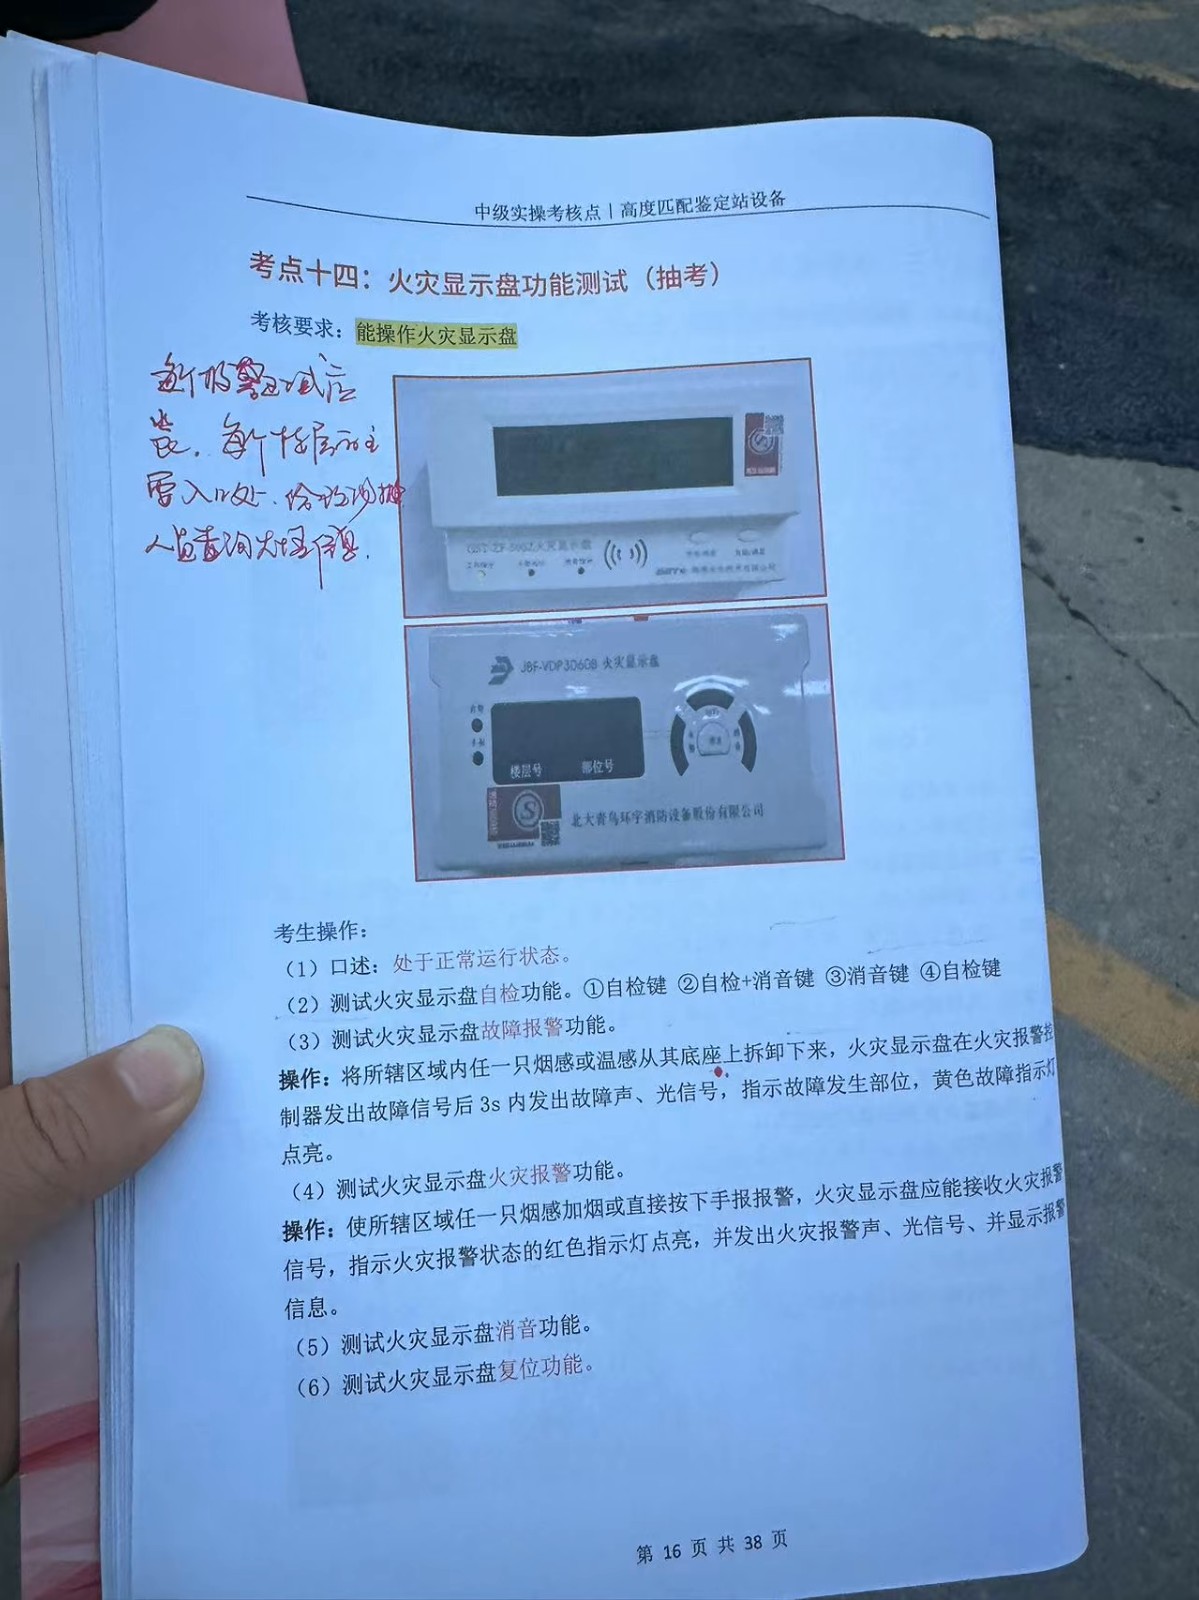 中级实操考核点 | 高度匹配鉴定站设备
考点十四：火灾显示盘功能测试（抽考）
考核要求：能操作火灾显示盘
每个报警区域应
装，每个楼层的主
要入口处，给现场
人员查询火场信息.
GST-ZF-500Z火灾显示盘
JBF-VDP3060B 火灾显示盘
楼层号 部位号
北大青鸟环宇消防设备股份有限公司
考生操作：
（1）口述：处于正常运行状态。
（2）测试火灾显示盘自检功能。①自检键 ②自检+消音键 ③消音键 ④自检键
（3）测试火灾显示盘故障报警功能。
操作：将所辖区域内任一只烟感或温感从其底座上拆卸下来，火灾显示盘在火灾报警控
制器发出故障信号后 3s 内发出故障声、光信号，指示故障发生部位，黄色故障指示灯
点亮。
（4）测试火灾显示盘火灾报警功能。
操作：使所辖区域任一只烟感加烟或直接按下手报报警，火灾显示盘应能接收火灾报警
信号，指示火灾报警状态的红色指示灯点亮，并发出火灾报警声、光信号、并显示报警
信息。
（5）测试火灾显示盘消音功能。
（6）测试火灾显示盘复位功能。
第 16 页 共 38 页